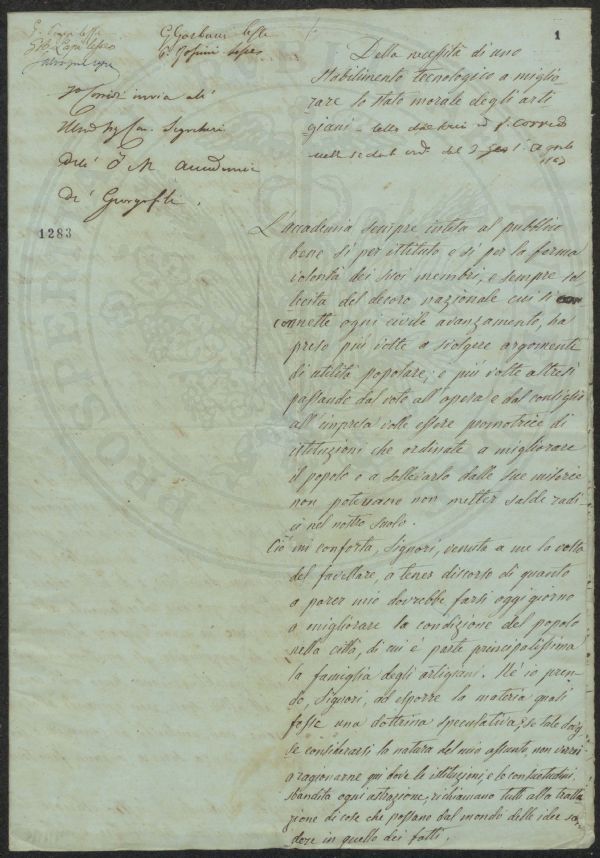 1
G. Gazzeri lesse
Della necessità di uno
stabilimento tecnologico a miglio
rare lo stato morale degli arti
giani
F. Corridi invia al
Segretari
della R. Accademia
de' Georgofili.
1283
L'accademia sempre intesa al pubblico
bene sì per istituto e sì per la ferma
volontà dei suoi membri, e sempre sol
lecita del decoro nazionale cui si
connette ogni civile avanzamento, ha
preso più volte a svolgere argomenti
di utilità popolare; e più volte altresì
passando dal voto all'opera e dal consiglio
all'impresa volle essere promotrice di
istituzioni che ordinate a migliorare
il popolo e a sollevarlo dalle sue miserie
non potevano non metter salde radi-
ci nel nostro suolo.
Ciò mi conforta, Signori, venuta a me la volta
del favellare, a tener discorso di quanto
a parer mio dovrebbe farsi oggi giorno
a migliorare la condizione del popolo
nella città, di cui è parte principalissima
la famiglia degli artigiani. Né io pren-
do, Signori, ad esporre la materia quasi
fosse una dottrina speculativa; se tale
considerarsi la natura del mio assunto, non verrei
a ragionarne qui dove le istituzioni, e le consuetudini
sbandita ogni astrazione, richiamano tutti alla tratta
zione di cose che possano dal mondo delle idee
in quello dei fatti.
PROSPERITÀ